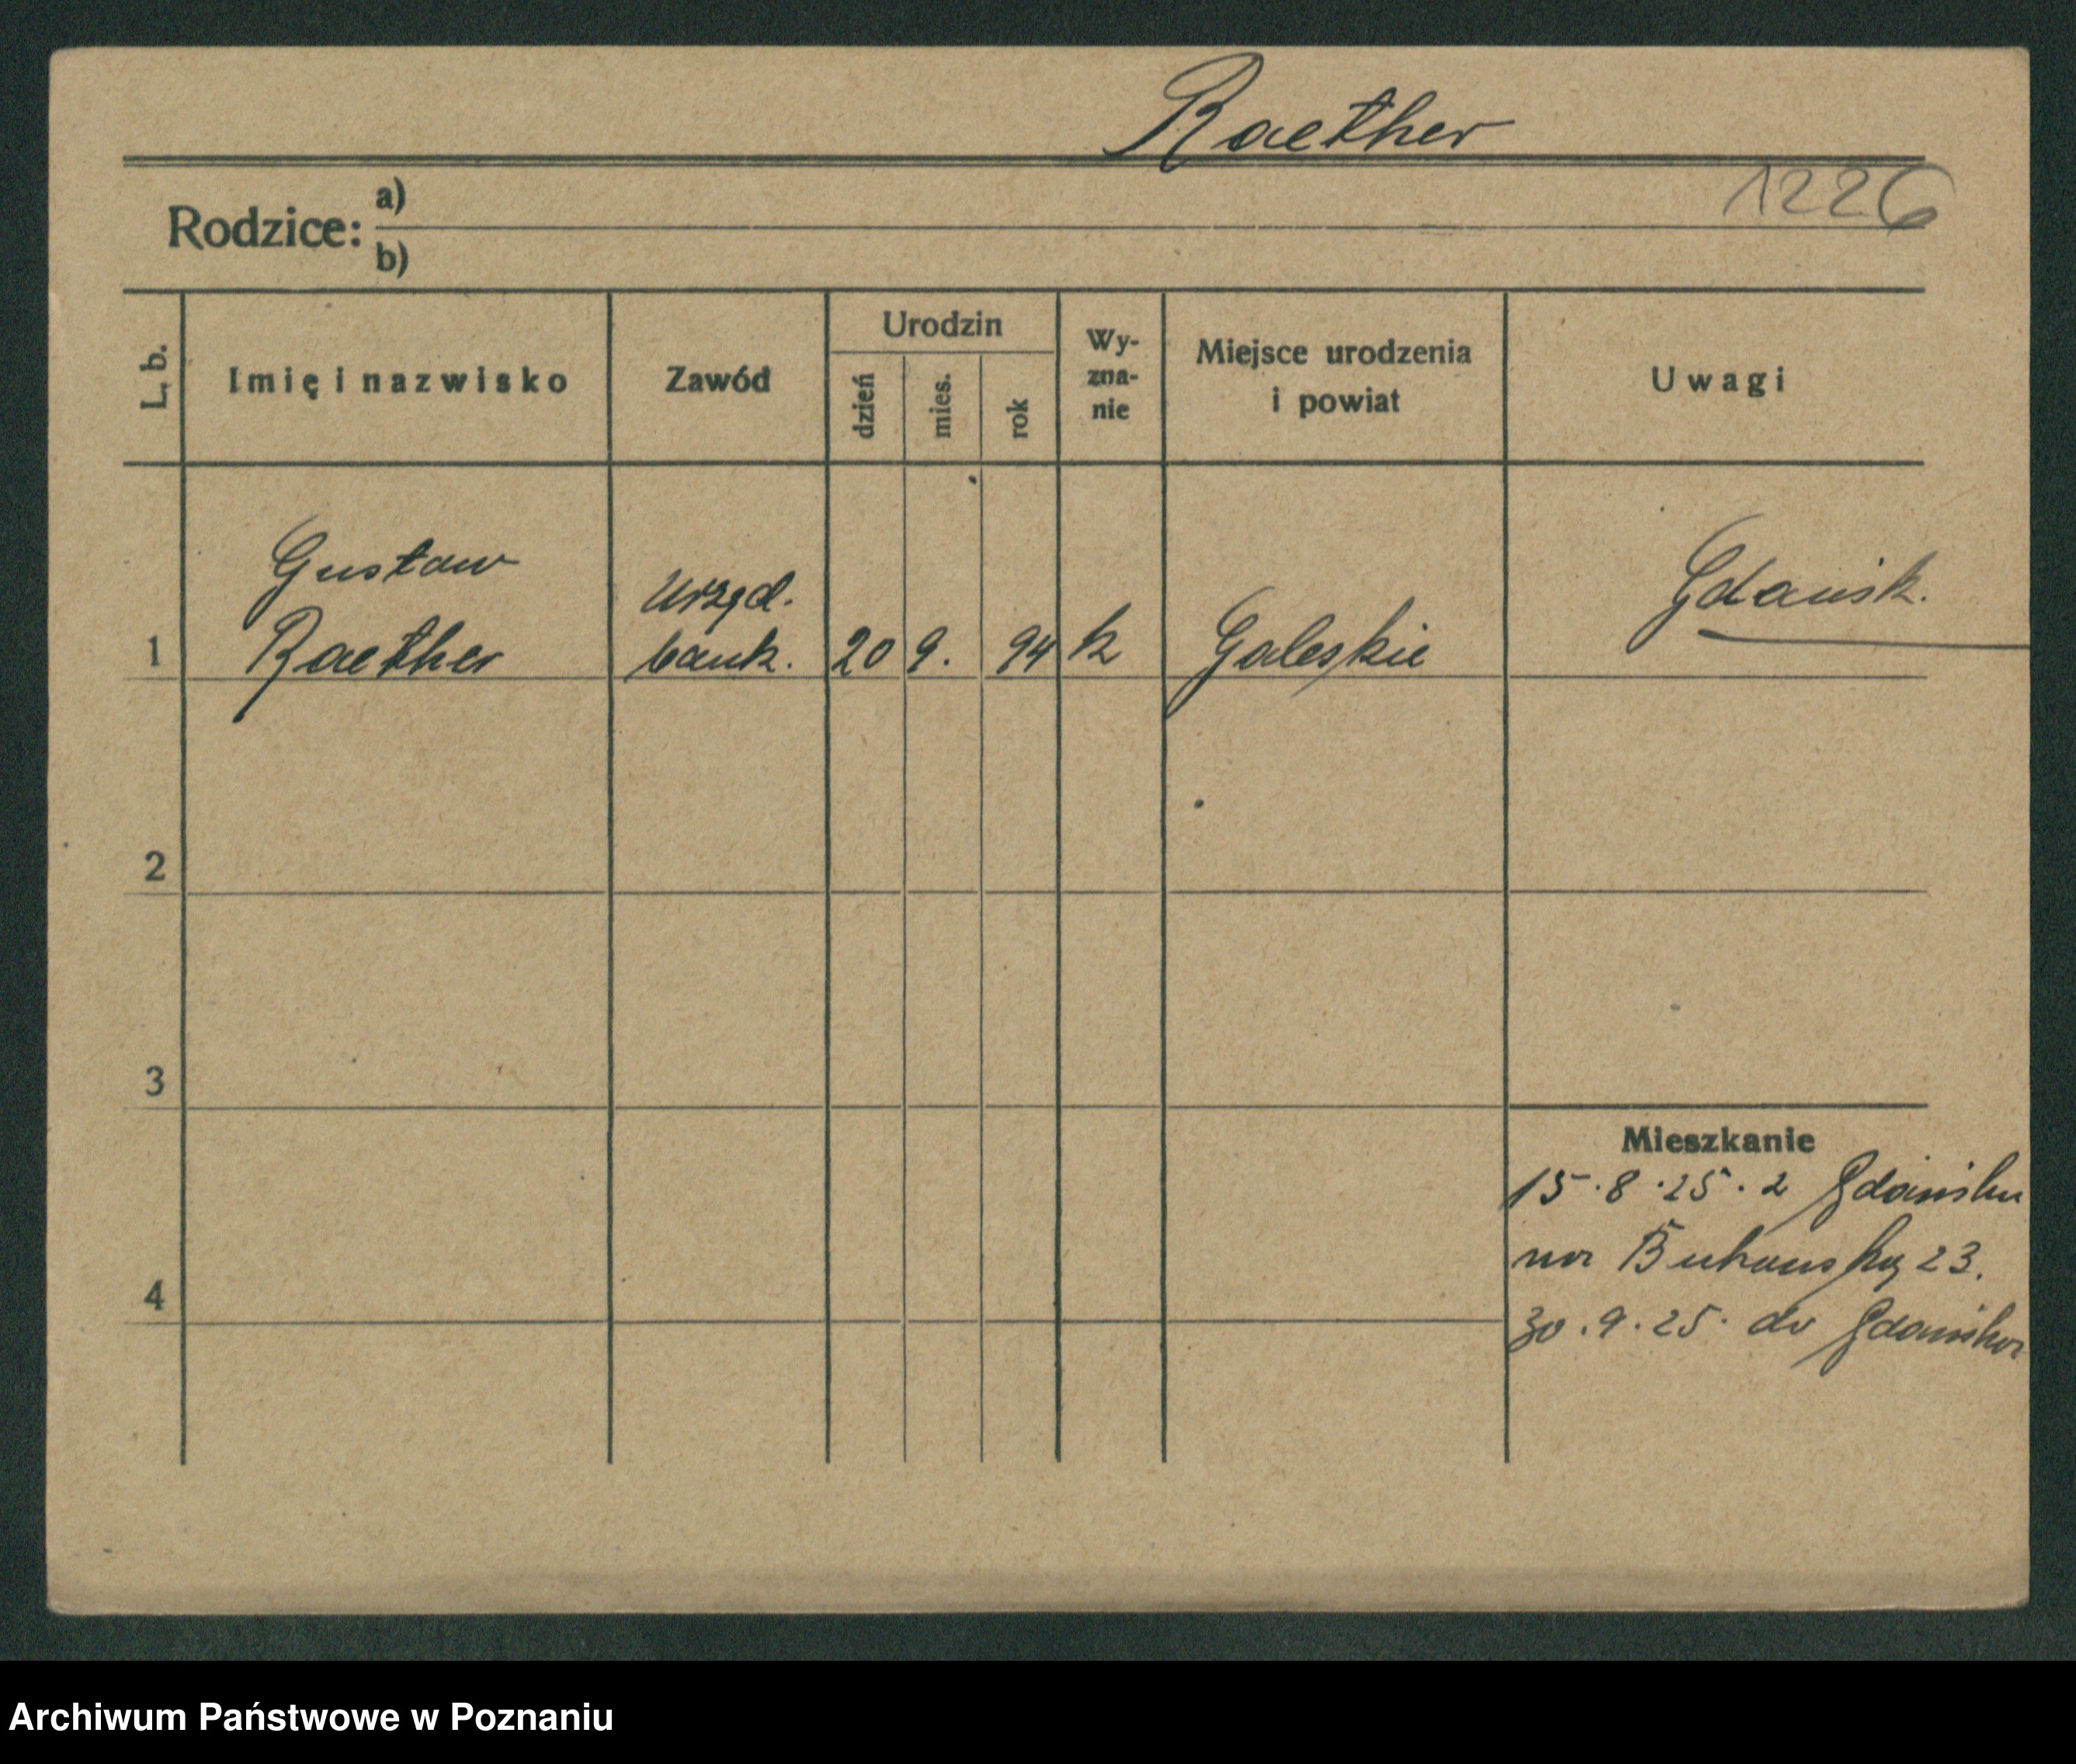 Raether
1226
Rodzice: a)
b)
L. b.
Imię i nazwisko
Zawód
Urodzin
dzień
mies.
rok
Wy-
zna-
nie
Miejsce urodzenia
i powiat
Uwagi
1
Gustaw
Raether
Urzęd.
bank.
20
9.
94
k
Galeskie
Gdańsk.
2
3
4
Mieszkanie
15.8.25. z Gdańska
na 23.
30.9.25. do Gdańska
Archiwum Państwowe w Poznaniu